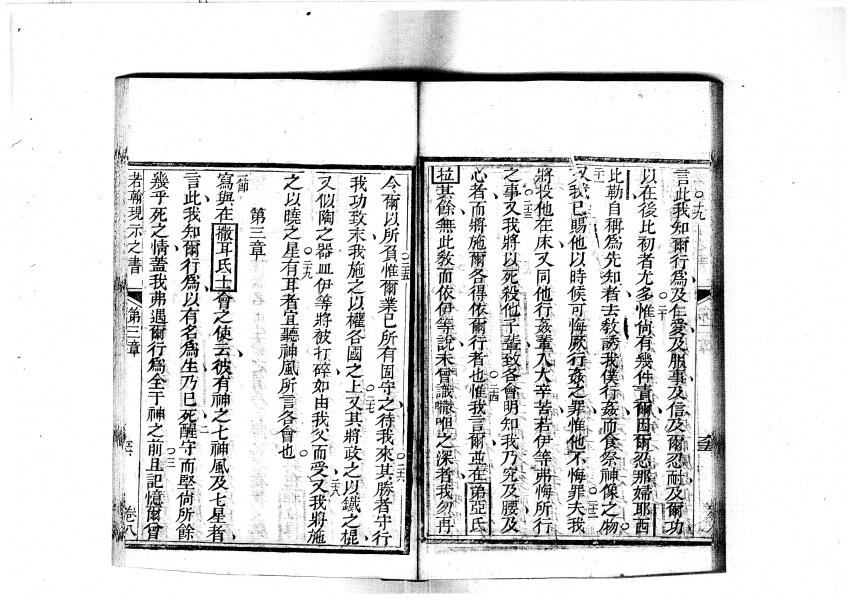 ○十九
言此我知爾行爲及仁愛及服事及信及爾忍耐及爾功
以在後比初者尤多惟尙有幾件責爾因爾忍那婦耶西
比勒自稱爲先知者去敎誘我僕行姦而食祭神像之物
又我已賜他以時候可悔厥行姦之罪惟他不悔罪夫我
將投他在床又同他行姦輩入大辛苦若伊等弗悔所行
之事又我將以死殺他子輩致各會明知我乃究及腰及
心者而將施爾各得依爾行者也惟我言爾並在弟亞氏
拉其餘無此敎而依伊等說未曾識之深者我勿再
今爾以所負惟爾業已所有固守之待我來其勝者守行
我功致末我施之以權各國之上又其將政之以鐵之棍
又似陶之器皿伊等將被打碎如由我父而受又我將施
之以曉之星有耳者宜聽神風所言各會也
第三章
一節
寫與在撒耳氏士會之使云彼有神之七神風及七星者
言此我知爾行爲以有名爲生乃已死醒守而堅尙所餘
幾乎死之情蓋我弗遇爾行爲全于神之前且記憶爾曾
若翰現示之書
第三章
卷八